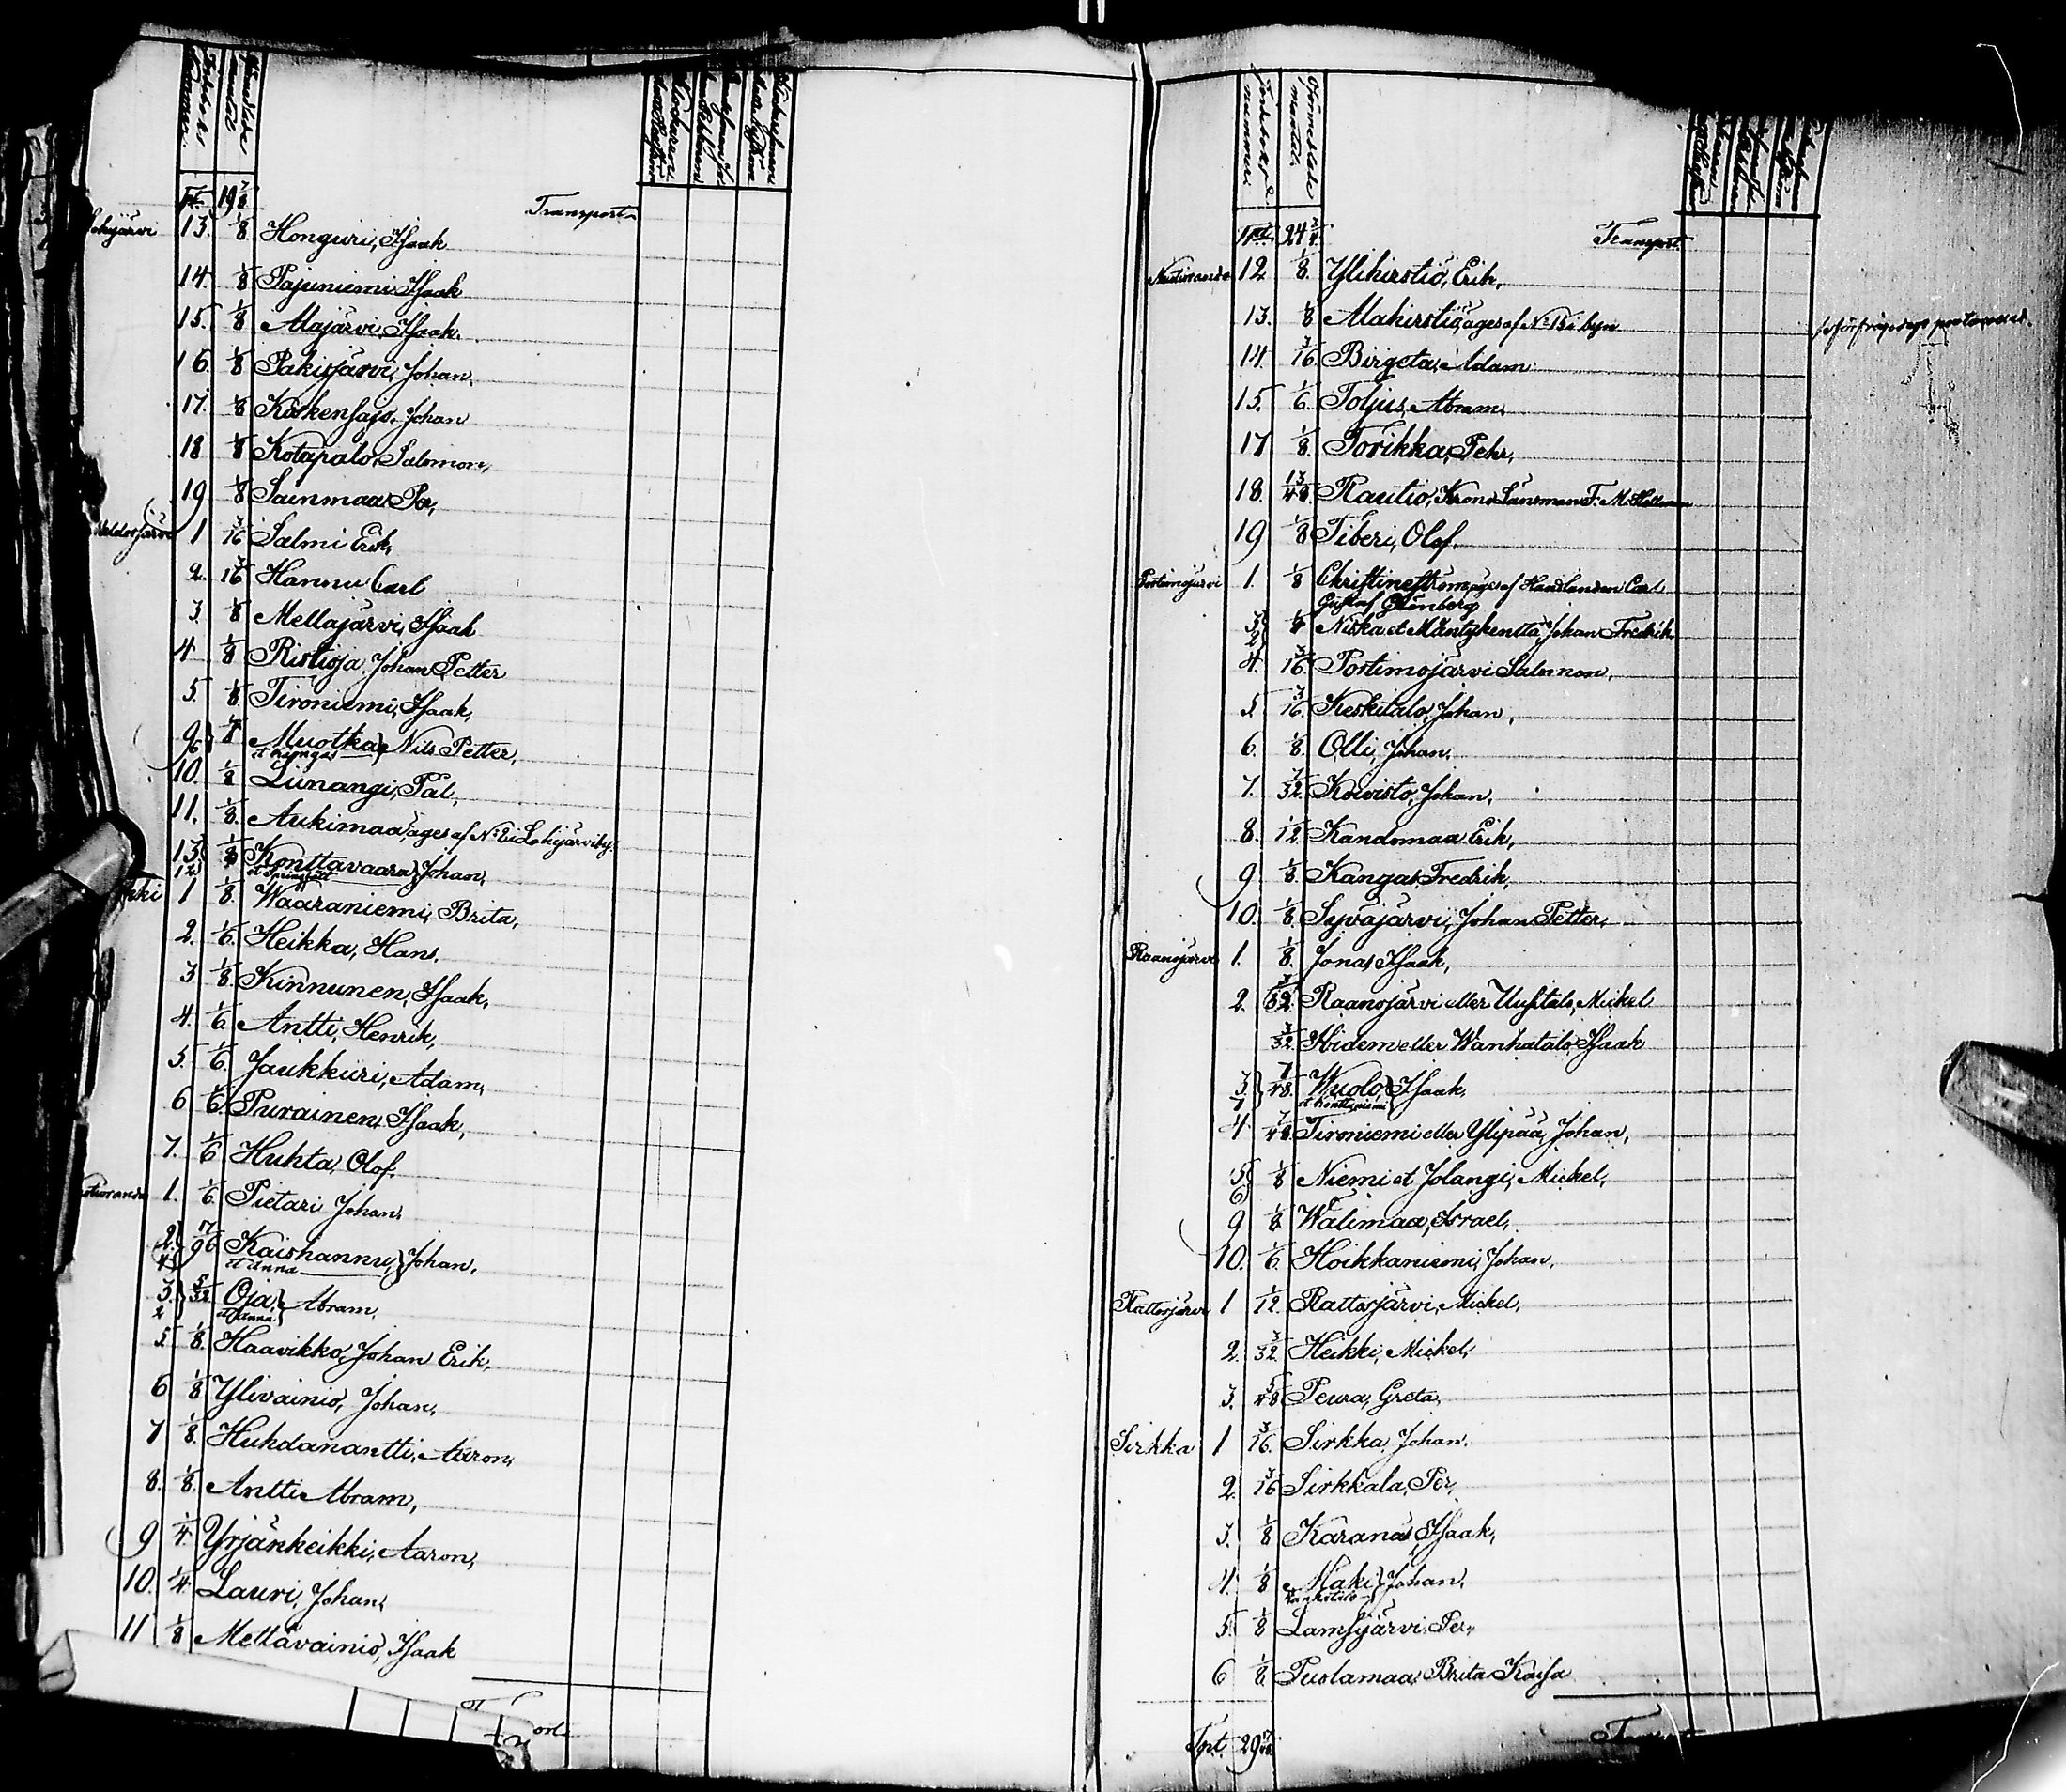 Jordeboks nummer. Förmedlade mantal
Tpt. 19 7/8 Transport
Lohijärvi 13. 1/8 Honguri, Isaak
14. 1/8 Pajuniemi, Isaak
15. 1/8 Alajärvi, Isaak.
16. 1/8 Pakisjärvi, Johan.
17. 1/8 Koskenlajo, Johan
18 1/8 Kotapalo, Salomon,
19 1/8 Sainmaa, Per,
1 3/16 Salmi Erik,
2. 3/16 Hannu Carl
3. 1/8 Mellajärvi, Isaak
4 1/8 Ristioja, Johan Petter
5. 1/8 Tironiemi, Isaak,
9 6 } 1/8 Muotka et Kyngas } Nils Petter,
10. 1/8 Liinangi, Pal,
11. 1/8. Aukimaa, ages af No 2 i Lohijärviby.
13. 12 } 1/8 Konttavaara } Johan,
1 1/8. Waaraniemi, Brita,
2. 1/6. Heikka, Hans.
3 1/8. Kinnunen, Isaak,
4. 1/6 Antti, Henrik,
5. 1/6. Jaukkuri, Adam,
6 1/6. Purainen, Isaak,
7. 1/6 Huhta, Olof.
1. 1/6. Pietari Johan,
2. 4 } 7/96 Kaishannu, et Anna } Johan,
3. 2 } 5/32 Oja, et Anna } Abram,
5. 1/8. Haavikko, Johan Erik,
6 1/8 Ylivainio, Johan,
7 1/8. Huhdanantti, Aaron,
8. 1/8. Antti Abram,
9 1/4. Yrjänheikki, Aaron,
10. 1/4. Lauri, Johan,
11 1/8 Mettävainio, Isaak
Jordeboks nummer. Förmedlade mantal.
Tpt. 24 3/4. Transport.
12 1/8. Ylihirstiö, Erik,
13. 1/8 Alahirstiö, ages af No 15 i byn
14. 3/16. Birgeta, Adam
15. 1/6. Toljus, Abram,
17 1/8. Torikka, Pehr,
18. 13/48 Rautio, Krono Länsman F. M.
19 1/8 Tiberi, Olof.
Portimojärvi 1. 1/8 Christineström, ages af Handlanden Carl
Gustaf Grönberg
3. 2 } 1/8 Niska et Mäntykenttä, Johan Fredrik
4. 3/16. Portimojärvi Salomon,
5. 3/16. Keskitalo, Johan,
6. 1/8. Olli, Johan.
7. 7/32. Koivisto, Johan,
8. 1/12 Kandomaa Erik,
9 1/8. Kangas Fredrik,
10. 1/8. Syväjärvi, Johan Petter,
Raanojärvi 1. 1/8. Jonas, Isaak,
2. 3/32. Raanojärvi eller Uusitalo, Mickel
3/32. Ibidem eller Wanhatalo, Isaak
3. 7 } 7/48. Wuolo, et Konttiniemi } Isaak,
4 7/48. Tironiemi eller Ylipää, Johan,
5 6 } 1/8 Niemi et Jolangi, Mickel,
9 1/8. Wälimaa, Israel,
10. 1/6. Hoikkaniemi, Johan,
Rattosjärvi 1 1/12. Rattosjärvi, Mickel,
2. 3/32. Heikki, Mickel,
3. 5/48 Peura, Greta,
Sirkka 1 3/16. Sirkka, Johan.
2. 3/16 Sirkkala, Per,
3. 1/8 Karanas, Isaak,
4. 1/8 Mäki } Johan,
5. 1/8 Lamsijärvi, Per,
6 1/8. Puolamaa, Brita Kaisa
Tpt. 29